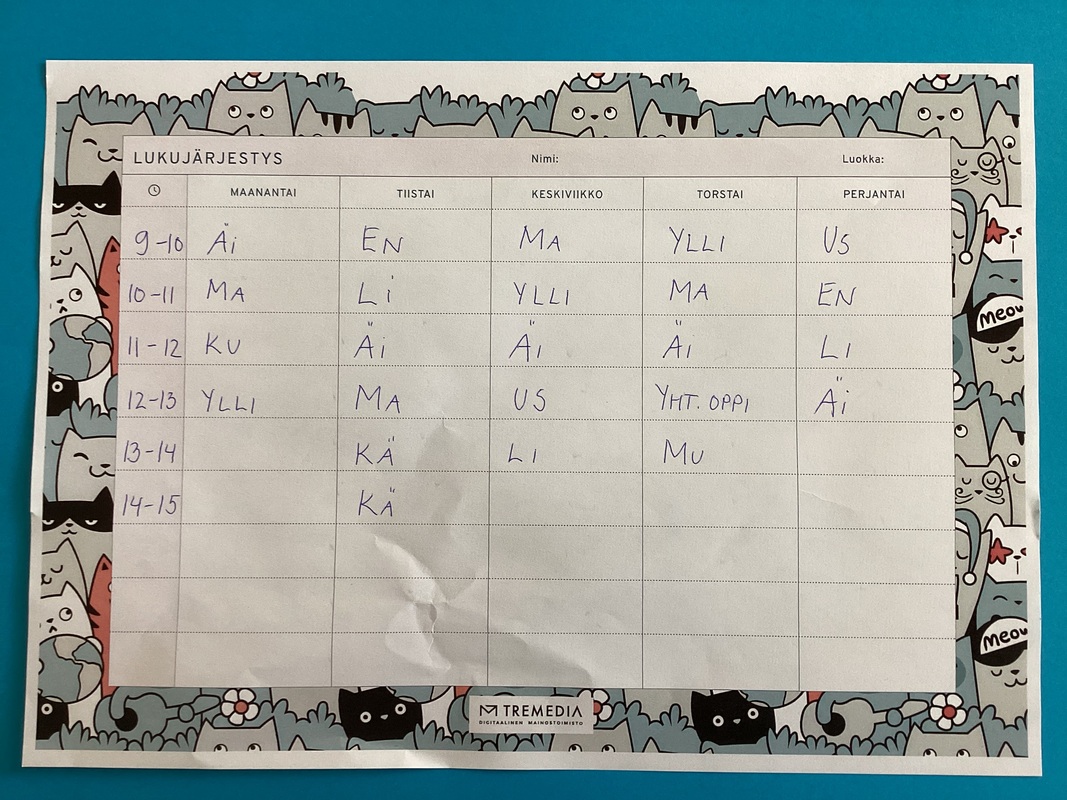 LUKUJÄRJESTYS Nimi: Luokka:
MAANANTAI TIISTAI KESKIVIIKKO TORSTAI PERJANTAI
9-10 Äi EN MA YLLI US
10-11 MA Li YLLI MA EN
11-12 KU Äi Äi Äi LI
12-13 YLLI MA US YHT. OPPI Äi
13-14 KÄ LI MU
14-15 KÄ
meow
meow
TREMEDIA
DIGITAALINEN MAINOSTOIMISTO